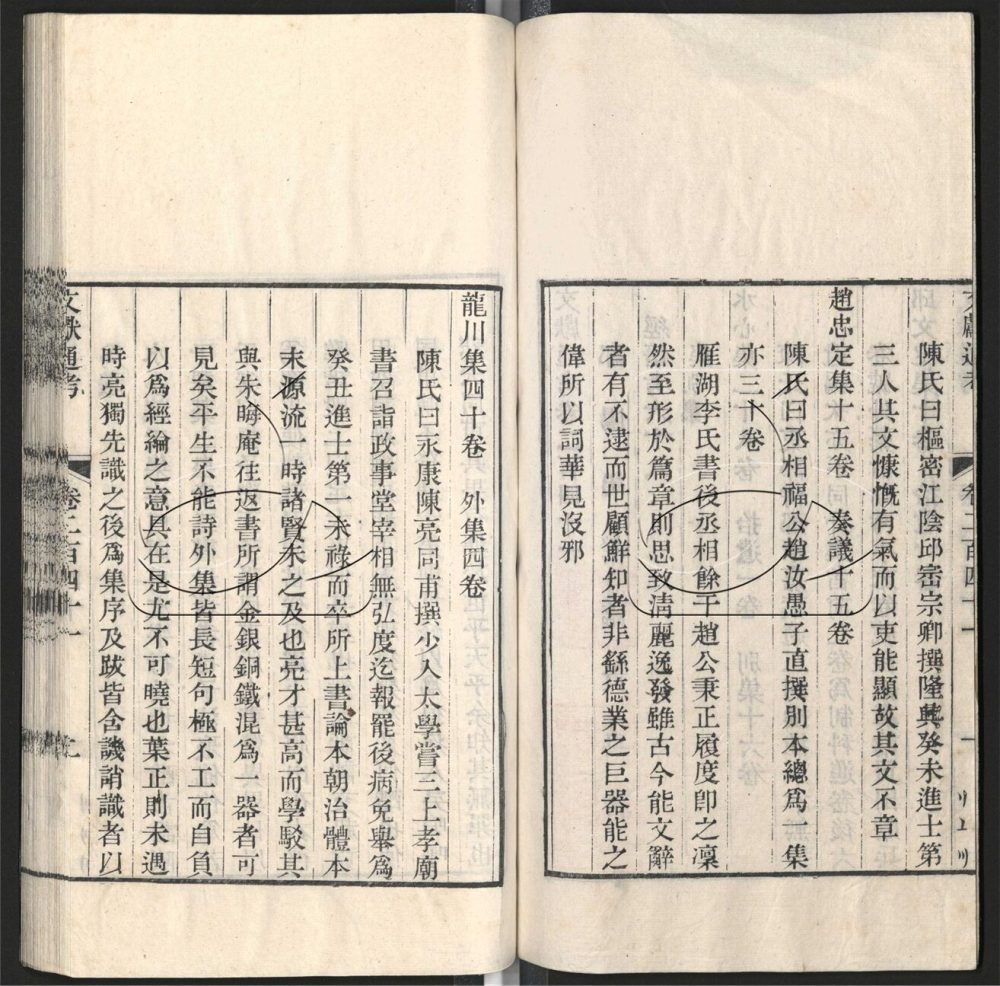 陳氏曰樞密江陰邱崈宗卿撰隆興癸未進士第
三人其文慷慨有氣而以吏能顯故其文不章
趙忠定集十五卷 奏議十五卷
陳氏曰丞相福公趙汝愚子直撰別本總爲一集
亦三十卷
雁湖李氏書後丞相餘干趙公秉正履度卽之凜
然至形於篇章則思致淸麗逸發雖古今能文辭
者有不逮而世顧鮮知者非繇德業之巨器能之
偉所以詞華見沒邪
龍川集四十卷 外集四卷
陳氏曰永康陳亮同甫撰少入太學嘗三上孝廟
書召詣政事堂宰相無弘度迄報罷後病免舉爲
癸丑進士第一未祿而卒所上書論本朝治體本
末源流一時諸賢未之及也亮才甚高而學駁其
與朱晦庵往返書所謂金銀銅鐵混爲一器者可
見矣平生不能詩外集皆長短句極不工而自負
以爲經綸之意具在是尤不可曉也葉正則未遇
時亮獨先識之後爲集序及跋皆含譏誚識者以
文獻通考 卷二百四十一